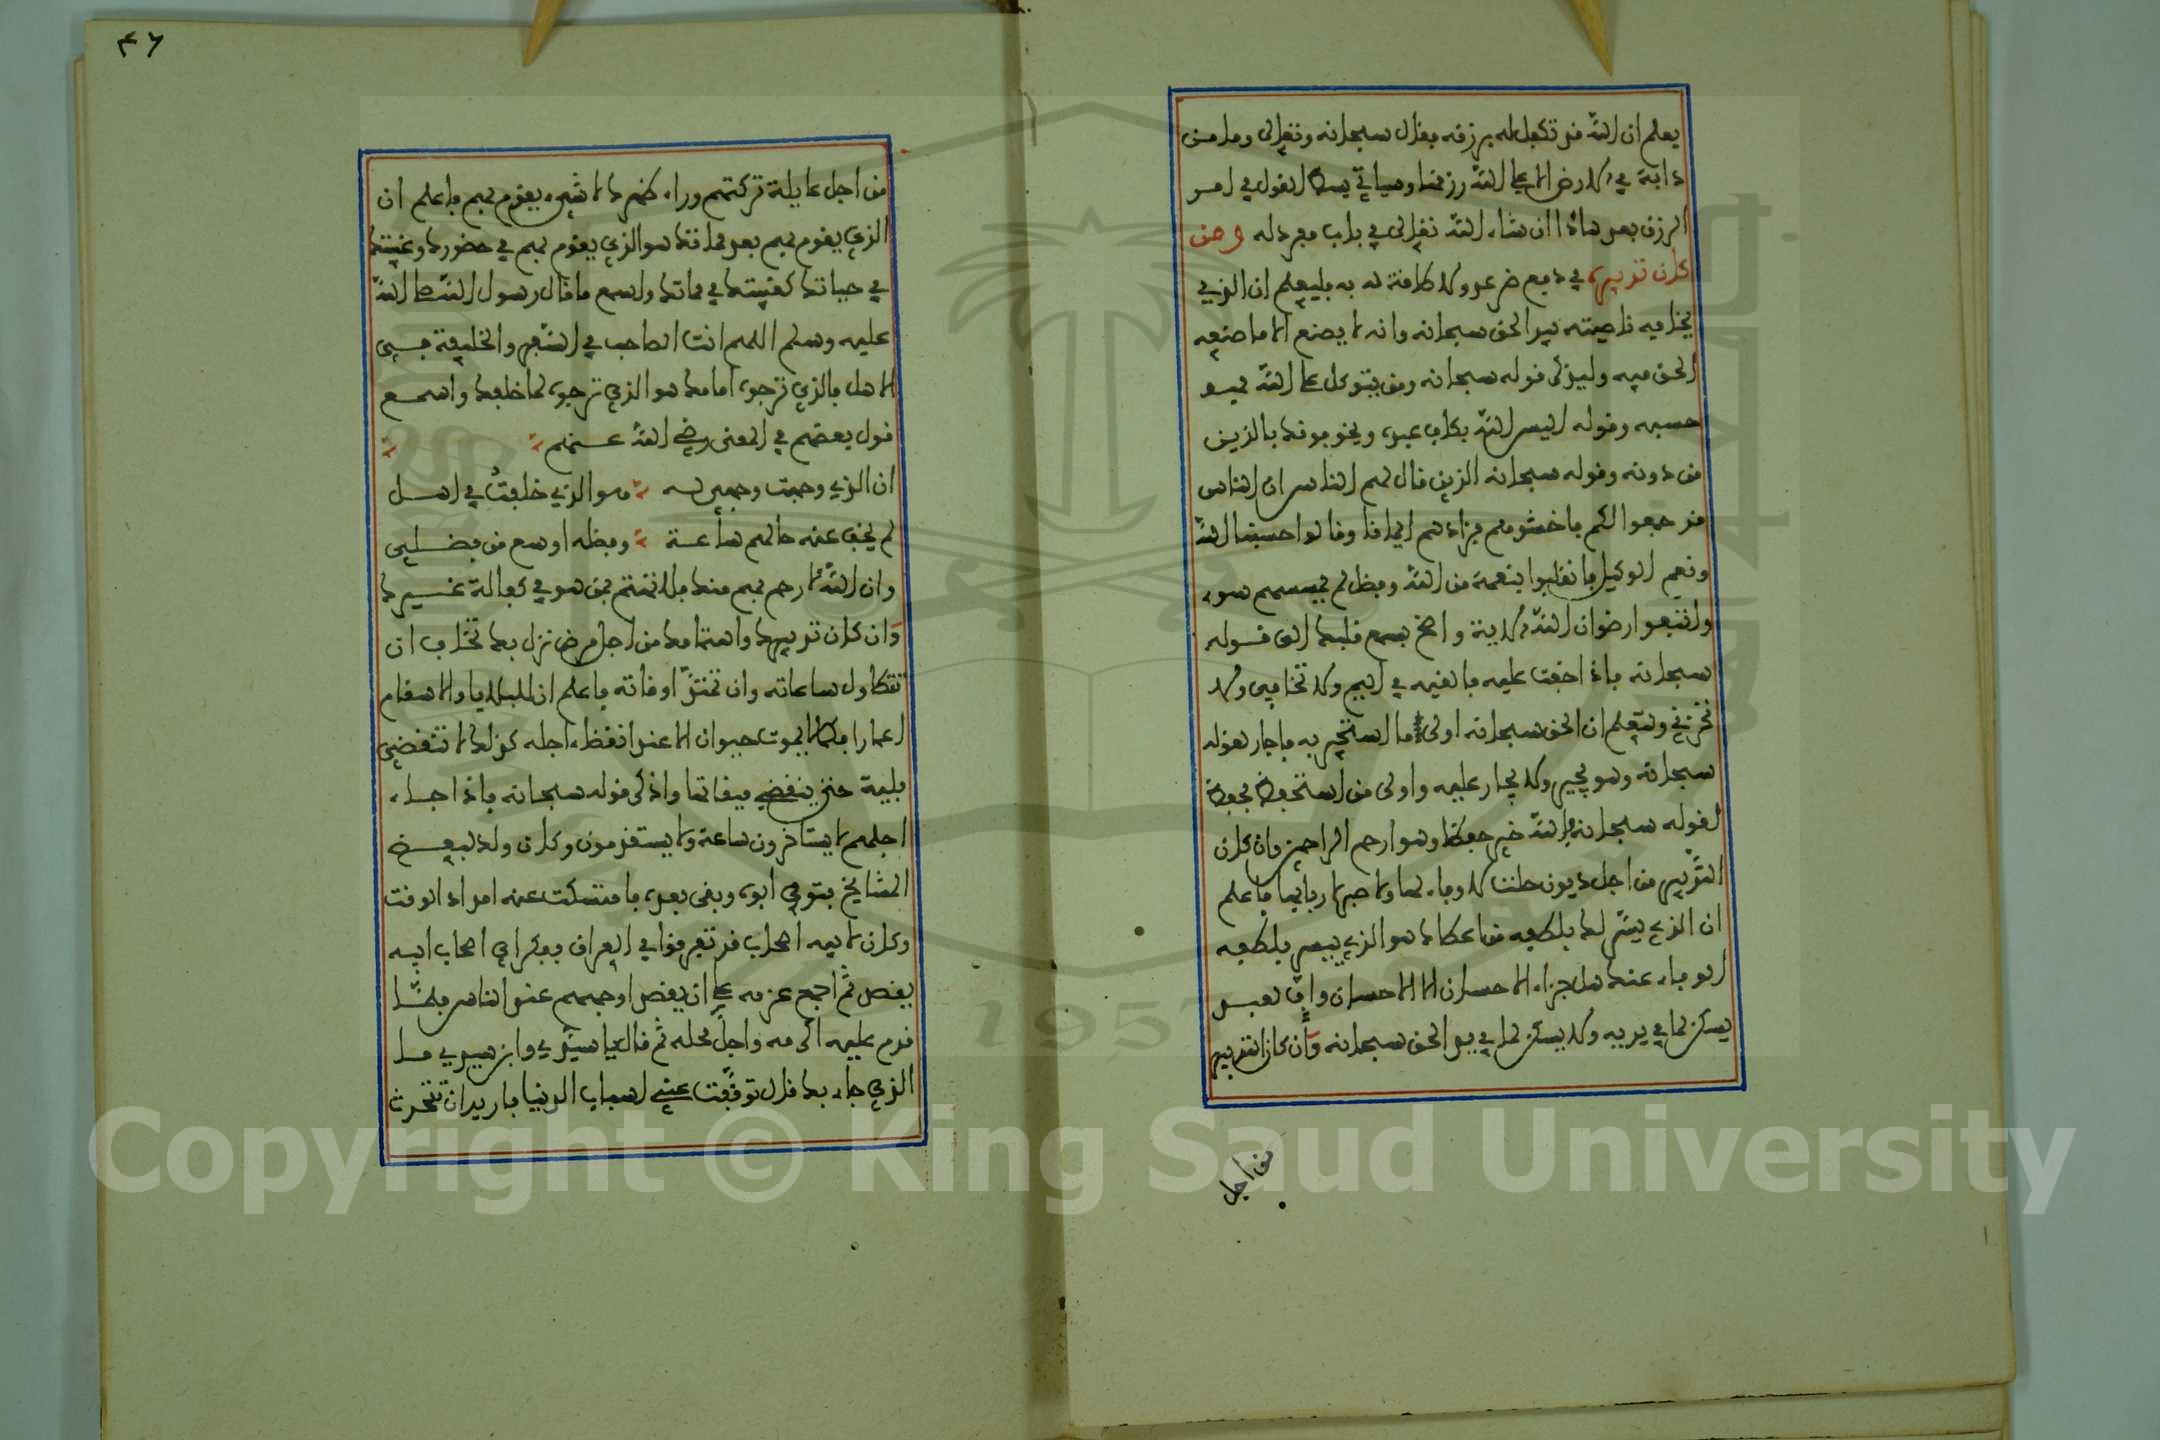 يعلم ان الله قد تكفل له برزقه بقال سبحانه وتعلى وما من
دابة في الارض الا على الله رزقها وسياتي بسط القول في امر
الرزق بعد هاذا ان شاء الله تعلى في باب مفرد له ومن
كان تدبيره في دفع ضر عدو لا طاقة له به فليعلم ان الذي
يخافه ناصيته بيد الحق سبحانه وانه لا يصنع الا ما صنعه
الحق فيه وليذكر قوله سبحانه ومن يتوكل على الله فهو
حسبه وقوله اليس الله بكاف عبده ويخوفونك بالذين
من دونه وقوله سبحانه الذين قال لهم الناس ان الناس
قد جمعوا لكم فاخشوهم فزادهم ايمانا وقالوا حسبنا الله
ونعم الوكيل فانقلبوا بنعمة من الله وفضل لم يمسسهم سوء
واتبعوا رضوان الله الاية واصخ بسمع قلبك الى قوله
سبحانه فاذا خفت عليه فالقيه في اليم ولا تخافي ولا
تحزني وتعلم ان الحق سبحانه اولى ما استجير به فاجار لقوله
سبحانه وهو يجير ولا يجار عليه واولى من استحفظ فحفظ
لقوله سبحانه فالله خير حفظا وهو ارحم الراحمين وان كان
التدبير من اجل ديون حلت لا وفاء لها ولا صبر لاربابها فاعلم
ان الذي يسر لك بلطفه من اعطاك هو الذي ييسر بلطفه
الوفاء عنك هل جزاء الاحسان الا الاحسان واف لعبد
يسكن لما في يديه ولا يسكن لما في يد الحق سبحانه وان كان التدبير
من اجل
٤٦
من اجل عايلة تركتهم وراء ظهرك لا شيء يقوم بهم فاعلم ان
الذي يقوم بهم بعد مماتك هو الذي يقوم بهم في حضورك وغيبتك
في حياتك كغيبتك في مماتك واسمع ما قال رسول الله صلى الله
عليه وسلم اللهم انت الصاحب في السفر والخليفة في
الاهل فالذي ترجوه امامك هو الذي ترجوه لما خلفك واسمع
قول بعضهم في المعنى رضي الله عنهم
ان الذي وجهت وجهي له هو الذي خلفت في اهل
لم يخف عنه حالهم ساعة وفضله اوسع من فضلي
وان الله لارحم بهم منك فلا تهتم بمن هو في كفالة غيرك
وان كان تدبيرك واهتمامك من اجل مرض نزل بك تخاف ان
تتطاول ساعاته وان تمتد اوقاته فاعلم ان للبلايا والاسقام
اعمارا فكما لا يموت حيوان الا عند انقضاء اجله كذلك لا تنقضي
بلية حتى ينقضي ميقاتها واذكر قوله سبحانه فاذا جاء
اجلهم لا يستاخرون ساعة ولا يستقدمون وكان ولد لبعض
المشايخ فتوفي ابوه وبقي بعده فامتسكت عنه امداد الوقت
وكان لابيه اصحاب قد تفرقوا في العراق ففكر اي اصحاب ابيه
يقصد ثم اجمع عزمه على ان يقصد اوجههم عند الناس فلما
قدم عليه اكرمه واجل محله ثم قال يا سيدي وابن سيدي ما
الذي جاء بك قال توقفت عني اسباب الدنيا فاريد ان تتحدث